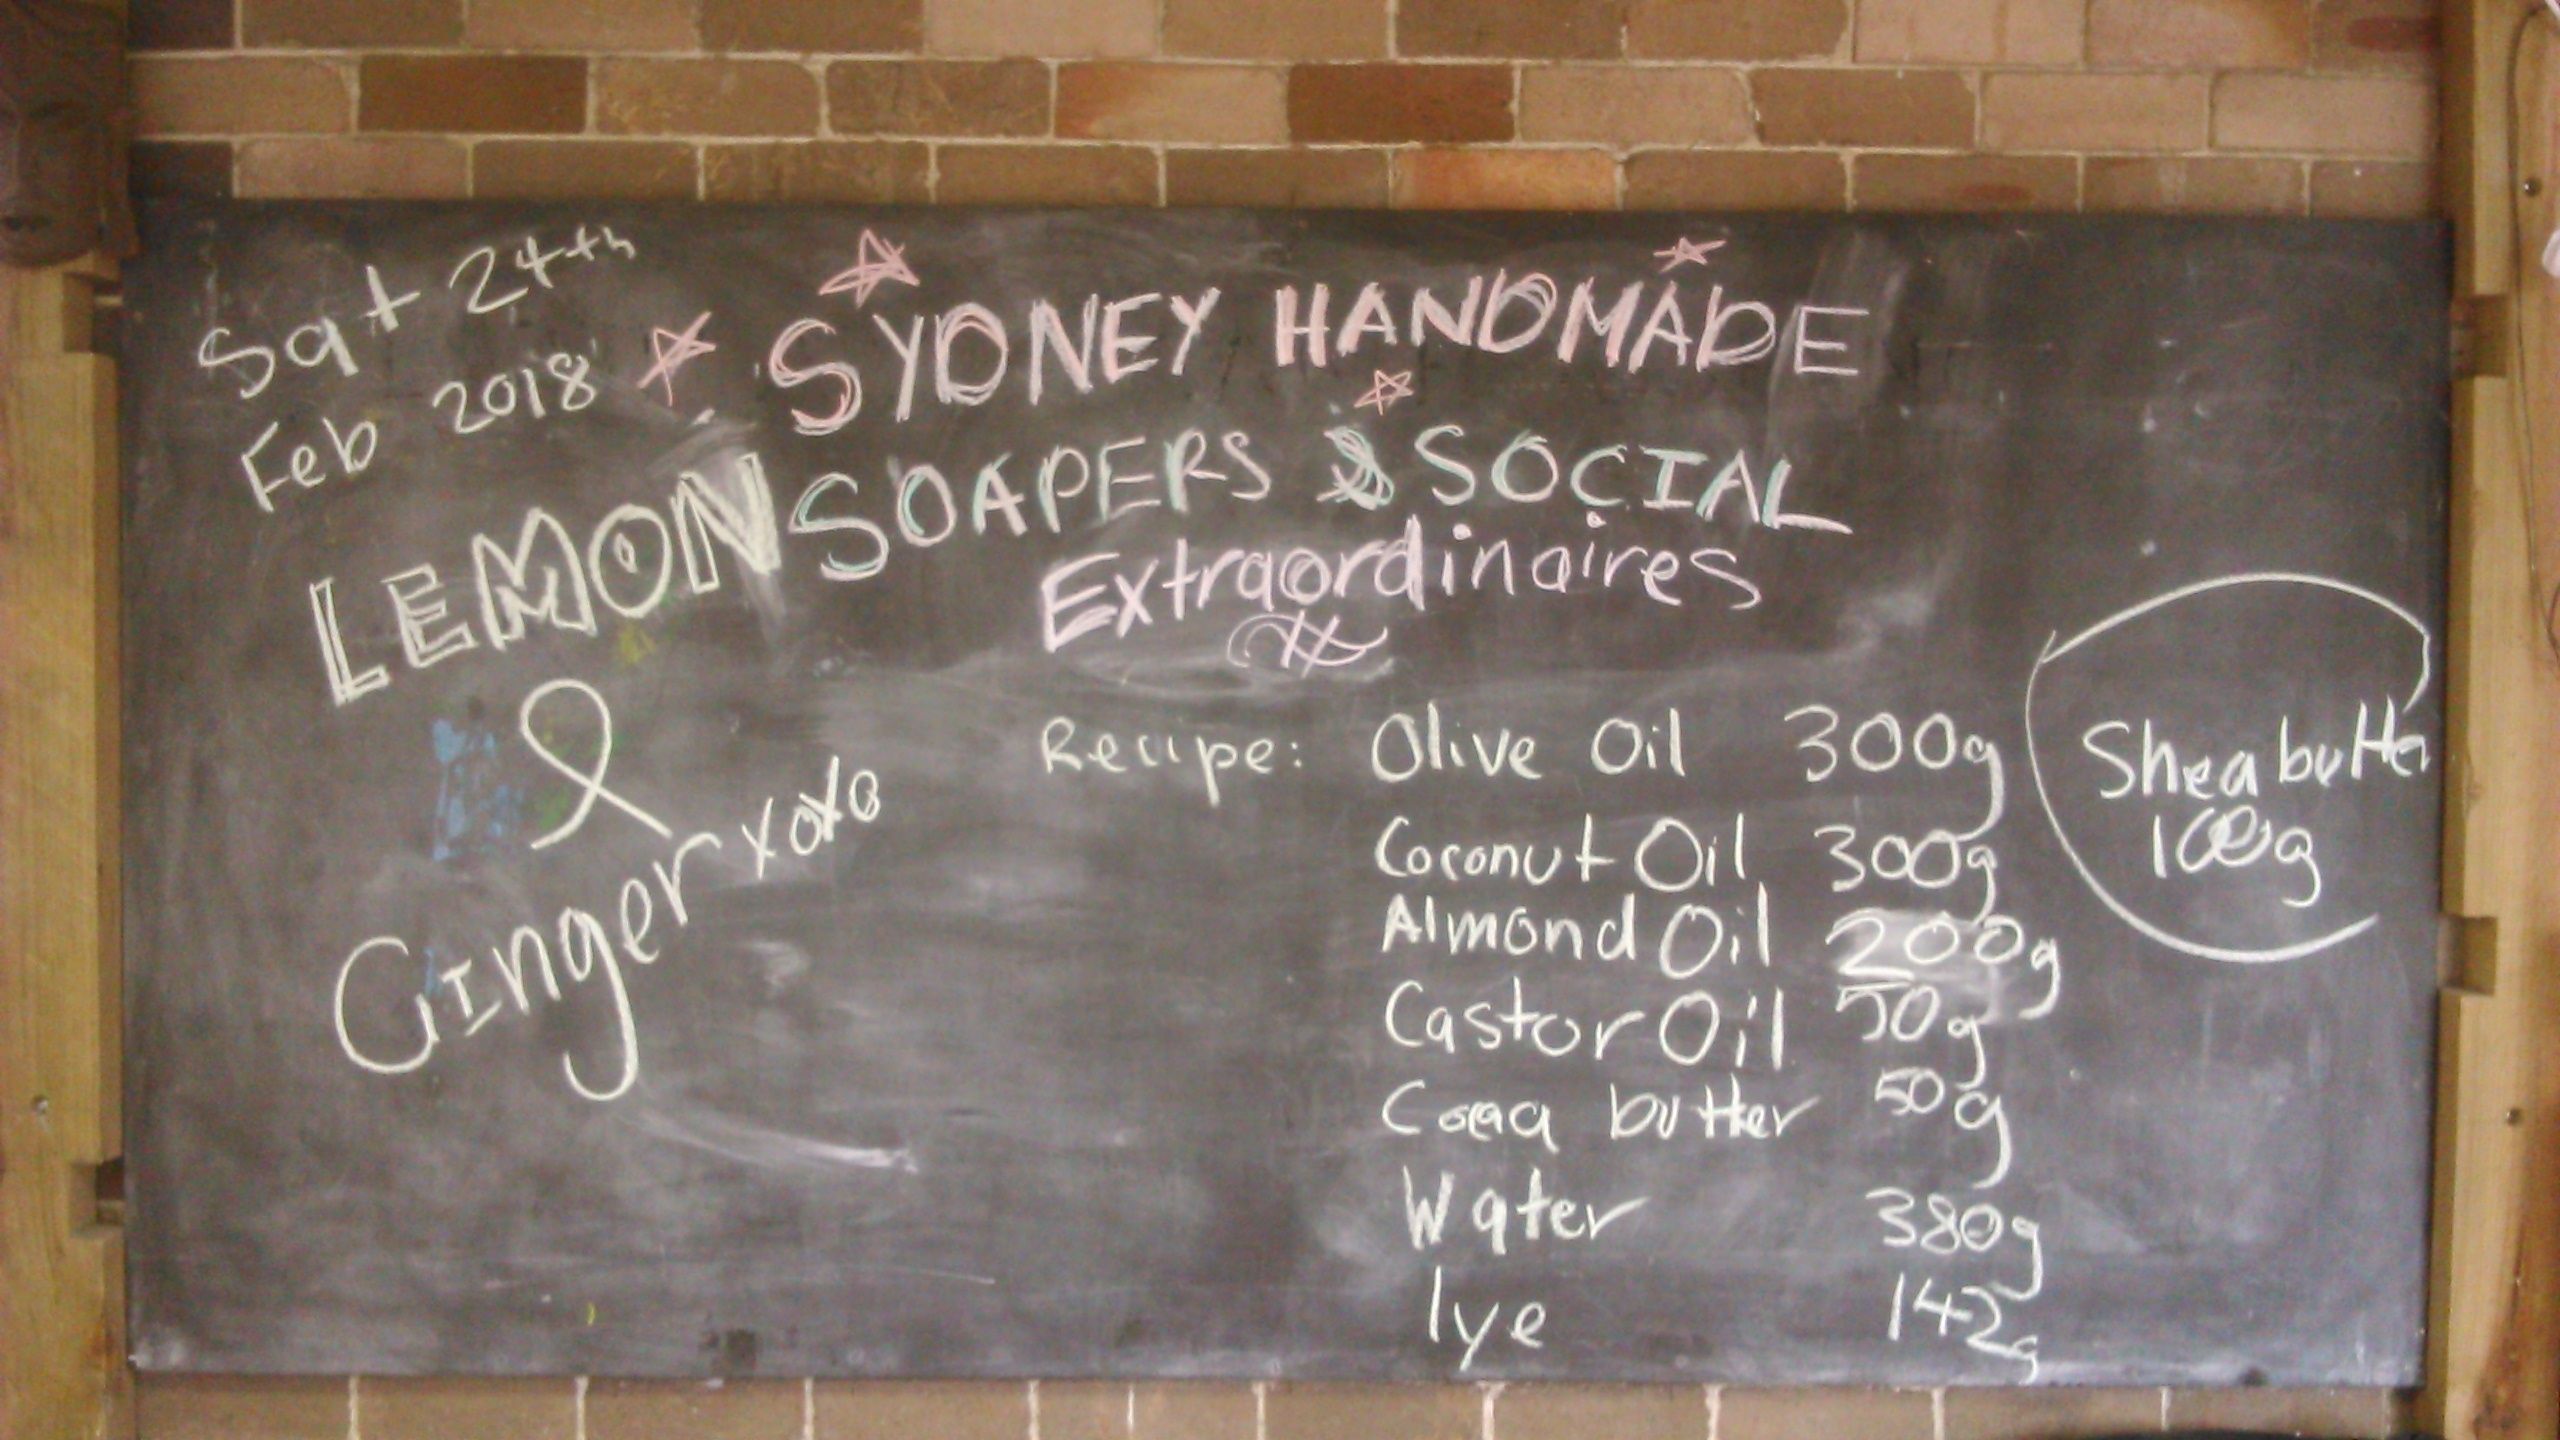 Sat 24th
Feb 2018
SYDNEY HANDMADE
SOAPERS & SOCIAL
Extraordinaires
LEMON
&
Ginger xoxo
Recipe: Olive Oil 300g
Coconut Oil 300g
Almond Oil 200g
Castor Oil 50g
Cocoa butter 50g
Water 380g
lye 142g
Shea butter
100g